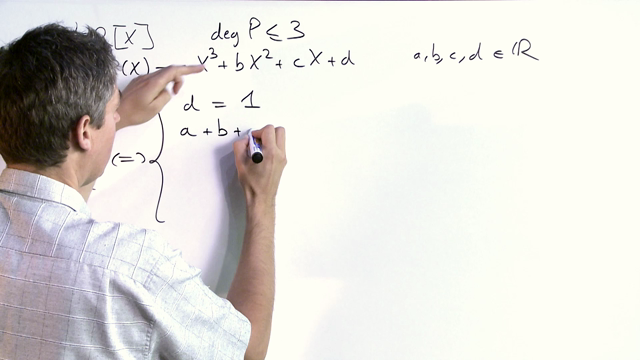 [X] deg P ≤ 3
(X) = X³ + bX² + cX + d a, b, c, d ∈ ℝ
d = 1
(=) { a + b +